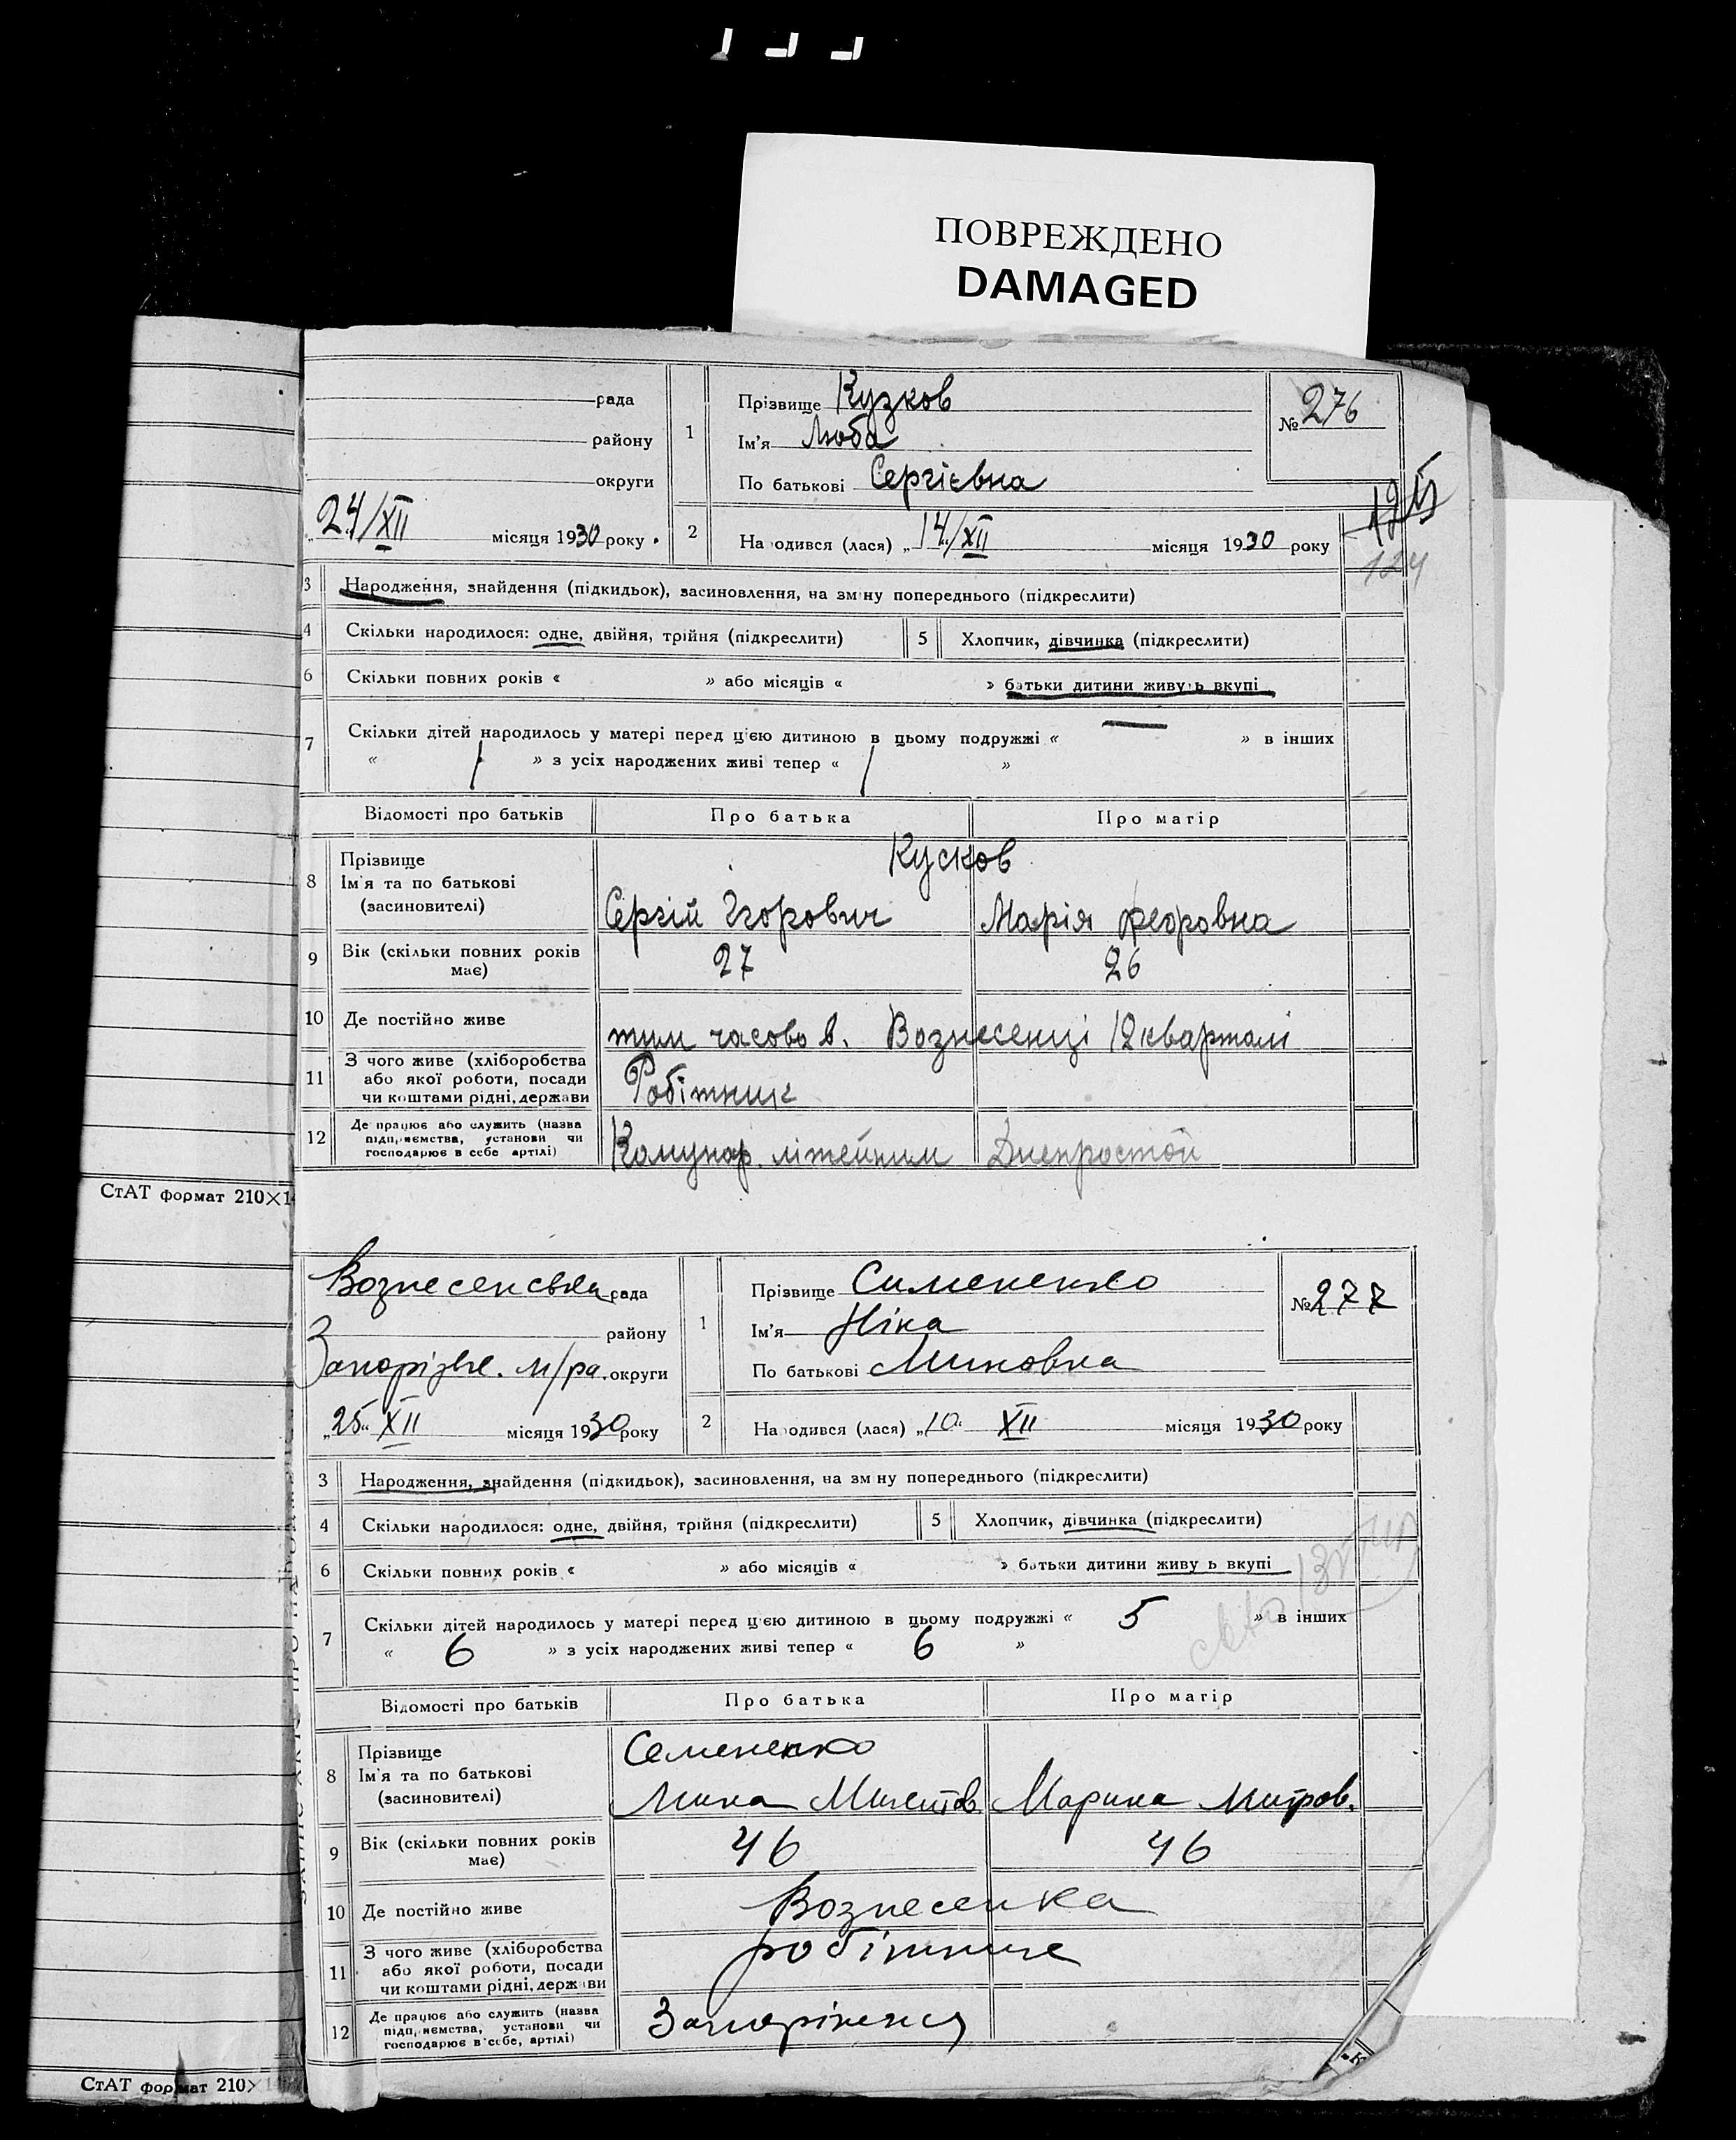 ПОВРЕЖДЕНО
DAMAGED
рада
району
округи
24/XII місяця 1930 року.
1
Прізвище Кузков
Ім'я Люба
По батькові Сергієвна
№ 276
125
124
2
На одився (лася) „14/XII місяця 1930 року
3 Народження, знайдення (підкидьок), засиновлення, на зм ну попереднього (підкреслити)
4 Скільки народилося: одне, двійня, трійня (підкреслити)
5 Хлопчик, дівчинка (підкреслити)
6 Скільки повних років « » або місяців « » батьки дитини живуть вкупі
7 Скільки дітей народилось у матері перед цією дитиною в цьому подружжі « — » в інших
« 1 » з усіх народжених живі тепер « 1 »
Відомості про батьків Про батька Про матір
8 Прізвище
Ім'я та по батькові
(засиновителі)
Кусков
Сергій Ігорович Марія Федровна
9 Вік (скільки повних років має)
27 26
10 Де постійно живе
тим часово в. Вознесенці 12 кварталі
11 З чого живе (хліборобства
або якої роботи, посади
чи коштами рідні, держави
Робітник
12 Де працює або служить (назва
підприємства, установи чи
господарює в себе артілі)
Комунар. літейним Днепрострой
СтАТ формат 210×1
Вознесенська рада
району
Запорізьк. м/ра. округи
„25“ XII місяця 1930 року
1
Прізвище Симененко
Ім'я Ніна
По батькові Миновна
№ 277
2
На одився (лася) „10“ XII місяця 1930 року
3 Народження, знайдення (підкидьок), засиновлення, на зм ну попереднього (підкреслити)
4 Скільки народилося: одне, двійня, трійня (підкреслити)
5 Хлопчик, дівчинка (підкреслити)
6 Скільки повних років « » або місяців « » батьки дитини живу ь вкупі
7 Скільки дітей народилось у матері перед цією дитиною в цьому подружжі « 5 » в інших
« 6 » з усіх народжених живі тепер « 6 »
Відомості про батьків Про батька Про матір
8 Прізвище
Ім'я та по батькові
(засиновителі)
Семененко
Мина Микитов. Марина Митров.
9 Вік (скільки повних років має)
46 46
10 Де постійно живе
Вознесенка
11 З чого живе (хліборобства
або якої роботи, посади
чи коштами рідні, держави
робітник
12 Де працює або служить (назва
підприємства, установи чи
господарює в себе, артілі)
СтАТ формат 210×